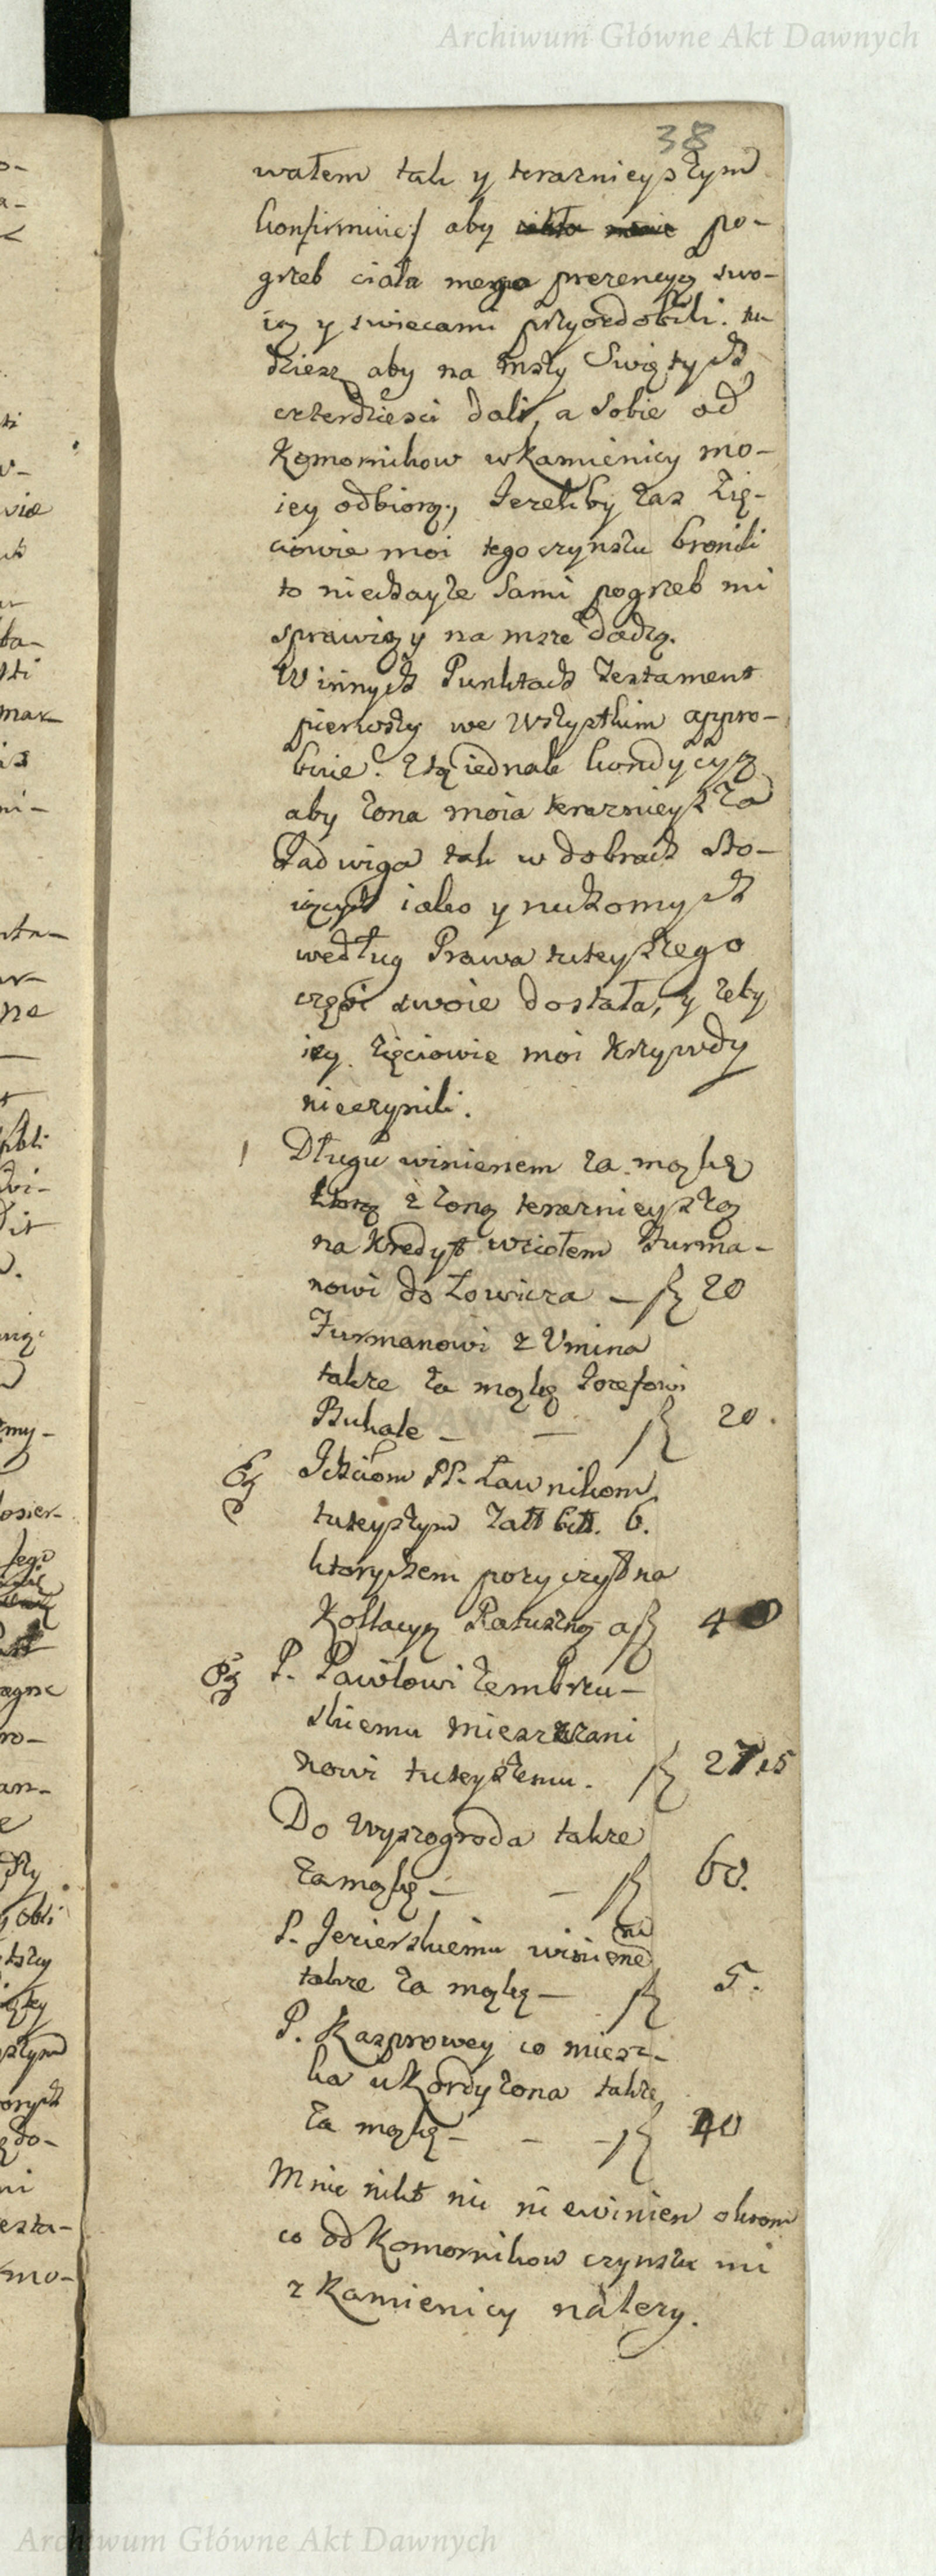 Archiwum Główne Akt Dawnych
38
wałem tak y teraznieyszym
konfirmuię/ aby po-
grzeb ciała mego prezencyą swo-
ią y swiecami przyozdobili. tu
dziesz aby na mszy Swiętych
czterdziesci dali, a sobie od
Komornikow wkamienicy mo-
iey odbiorą, Jezeliby zas Zię-
ciowie moi tego czynszu bronili
to niechayze sami pogrzeb mi
sprawią y na msze dadzą.
W innych Punktach Testament
pierwszy we Wszystkim appro-
buię. Ztą iednak kondycyą
aby zona moia teraznieysza
Jadwiga tak w dobrach sto-
iących iako y ruchomych
według Prawa tuteyszego
częsc swoie dostała, y zeby
iey zięciowie moi krzywdy
nieczynili.
Długu winienem za mąkę
ktorą z zoną teraznieyszą
na kredyt wziołem Furma-
nowi do Łowicza — 20
Furmanowi z Vmina
takze za mąkę Jozefowi
Buhale — — 20.
Ichciom PP. Ławnikom
tuteyszym Zall bitt. 6.
ktorychem pozyczył na
Kollacyą Ratuszną a 40
P. Pawłowi Zembrzu-
skiemu mieszczani
nowi tuteyszemu. 27 15
Do Wyszogroda takze
za mąkę — — 60.
P. Jezierskiemu winienem
takze za mąkę — 5.
P. Kasprowey co miesz-
ka u Kordyzona takze
za mąkę — — — 40
Mnie nikt nic niewinien okrom
co od Komornikow czynszu mi
z Kamienicy nalezy.
Archiwum Główne Akt Dawnych